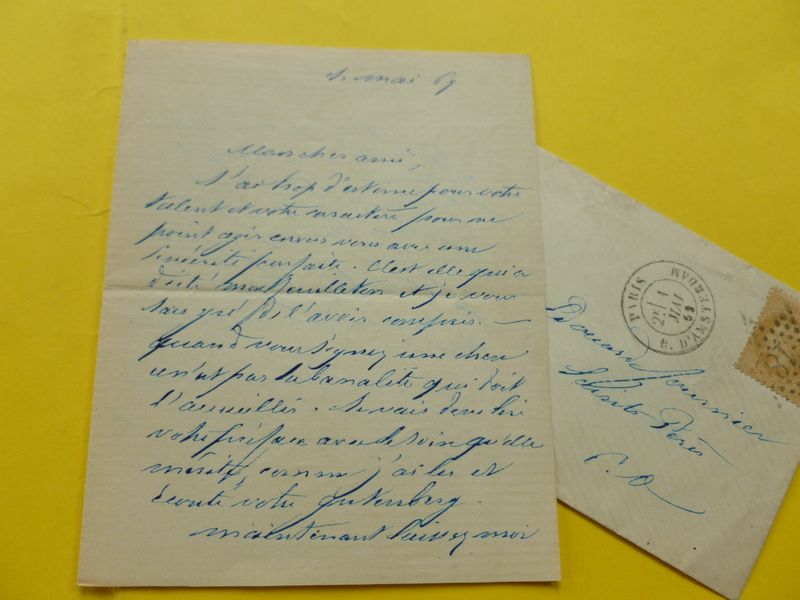 mai 69
Mon cher ami,
J'ai trop d'estime pour votre
talent et votre caractère pour ne
point agir envers vous avec une
sincérité parfaite. C'est elle qui a
dicté mon feuilleton et je vous
sais gré de l'avoir compris. —
quand vous signez une chose
ce n'est pas la banalité qui doit
l'accueillir. Je vais donc lire
votre préface avec le soin qu'elle
mérite, comme j'ai lu et
écouté votre gutenberg.
maintenant laissez moi
Edouard fournier
Saints Pères
PARIS
2E 1
MAI
69
R. D'AMSTERDAM